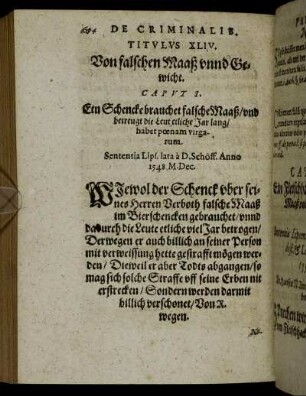 694 DE CRIMINALIB.
TITVLVS XLIV.
Von falschen Maaß vnnd Ge-
wicht.
CAPVT I.
Ein Schencke brauchet falsche Maaß/ vnd
betreugt die Leut etliche Jar lang/
habet pœnam virga-
rum.
Sententia Lips. lata à D. Schöff. Anno
1548 M. Dec.
WIewol der Schenck vber sei-
nes Herren Verboth falsche Maaß
im Bierschencken gebrauchet/ vnnd
dadurch die Leute etliche viel Jar betrogen/
Derwegen er auch billich an seiner Person
mit verweissung hette gestrafft mögen wer-
den/ Dieweil er aber Todts abgangen/ so
mag sich solche Straffe vff seine Erben nit
erstrecken/ Sondern werden darmit
billich verschonet/ Von R.
wegen.